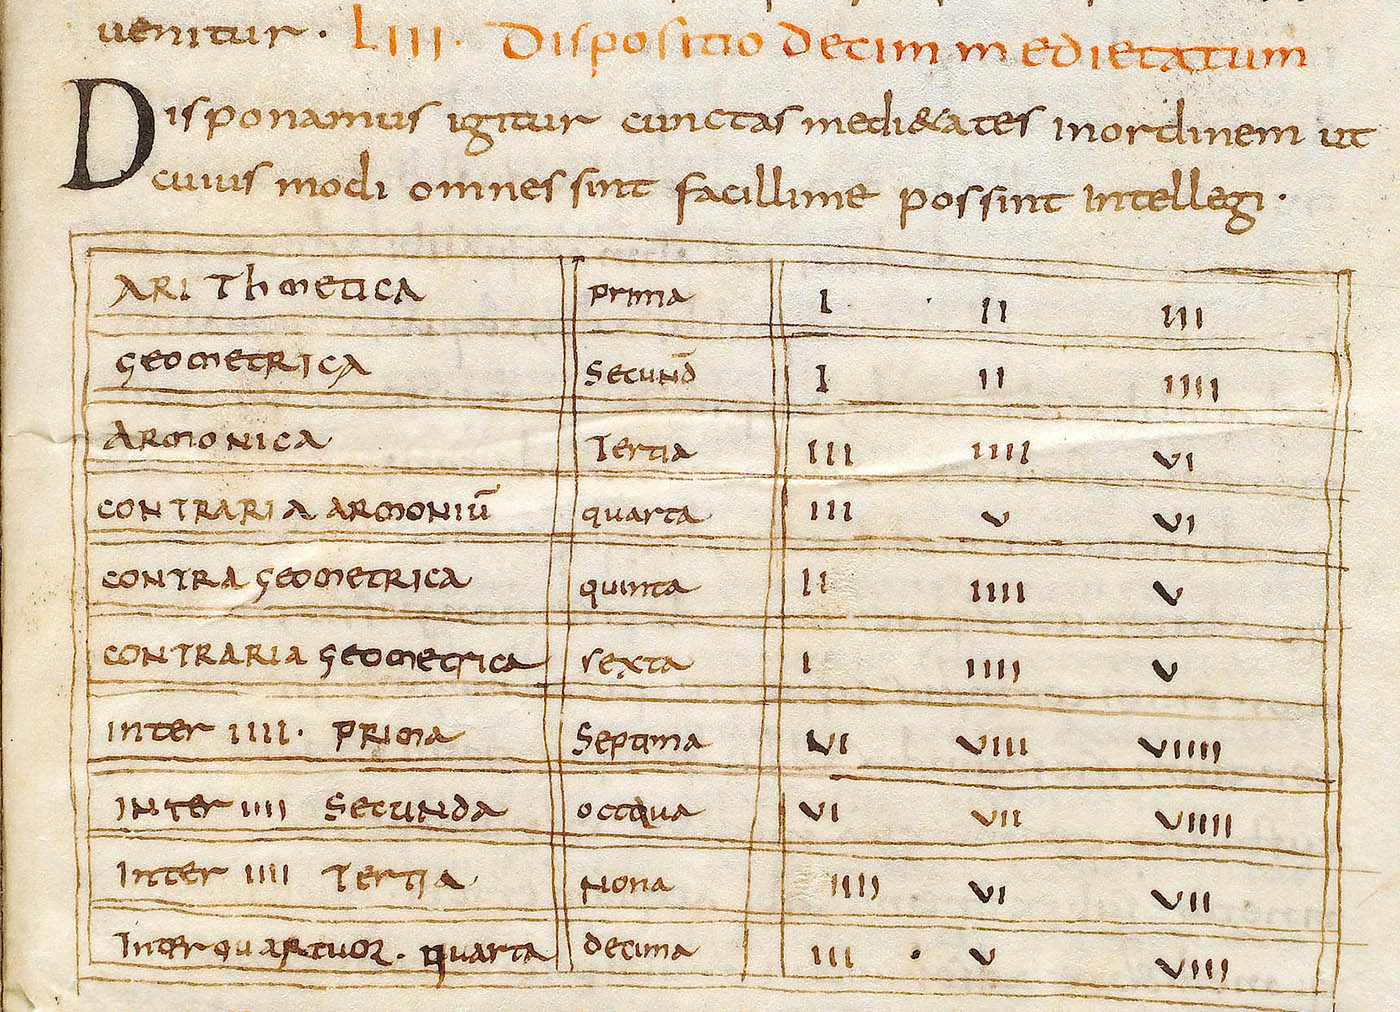 uenitur. LIII. Dispositio decim medietatum
Disponamus igitur cunctas medi&ates inordinem ut
cuius modi omnes sint facillime possint intellegi.
ARIThmetica prima I II III
Geometrica Secund̄ I II IIII
Armonica Tertia III IIII VI
CONTRARIA ARMONIŪ quarta III V VI
CONTRA Geometrica quinta II IIII V
CONTRARIA Geometrica sexta I IIII V
Inter IIII. PRIMA Septima VI VIII VIIII
INTer IIII Secunda octaua VI VII VIIII
Inter IIII Tertia Nona IIII VI VII
Inter quattuor. quarta decima III V VIII